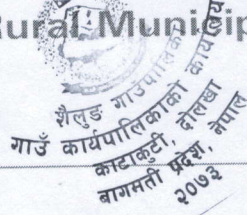 Rural Municip
शैलुङ गाउँपालिका
गाउँ कार्यपालिकाको कार्यालय
काटाकुटी, दोलखा
बागमती प्रदेश, नेपाल
२०७३